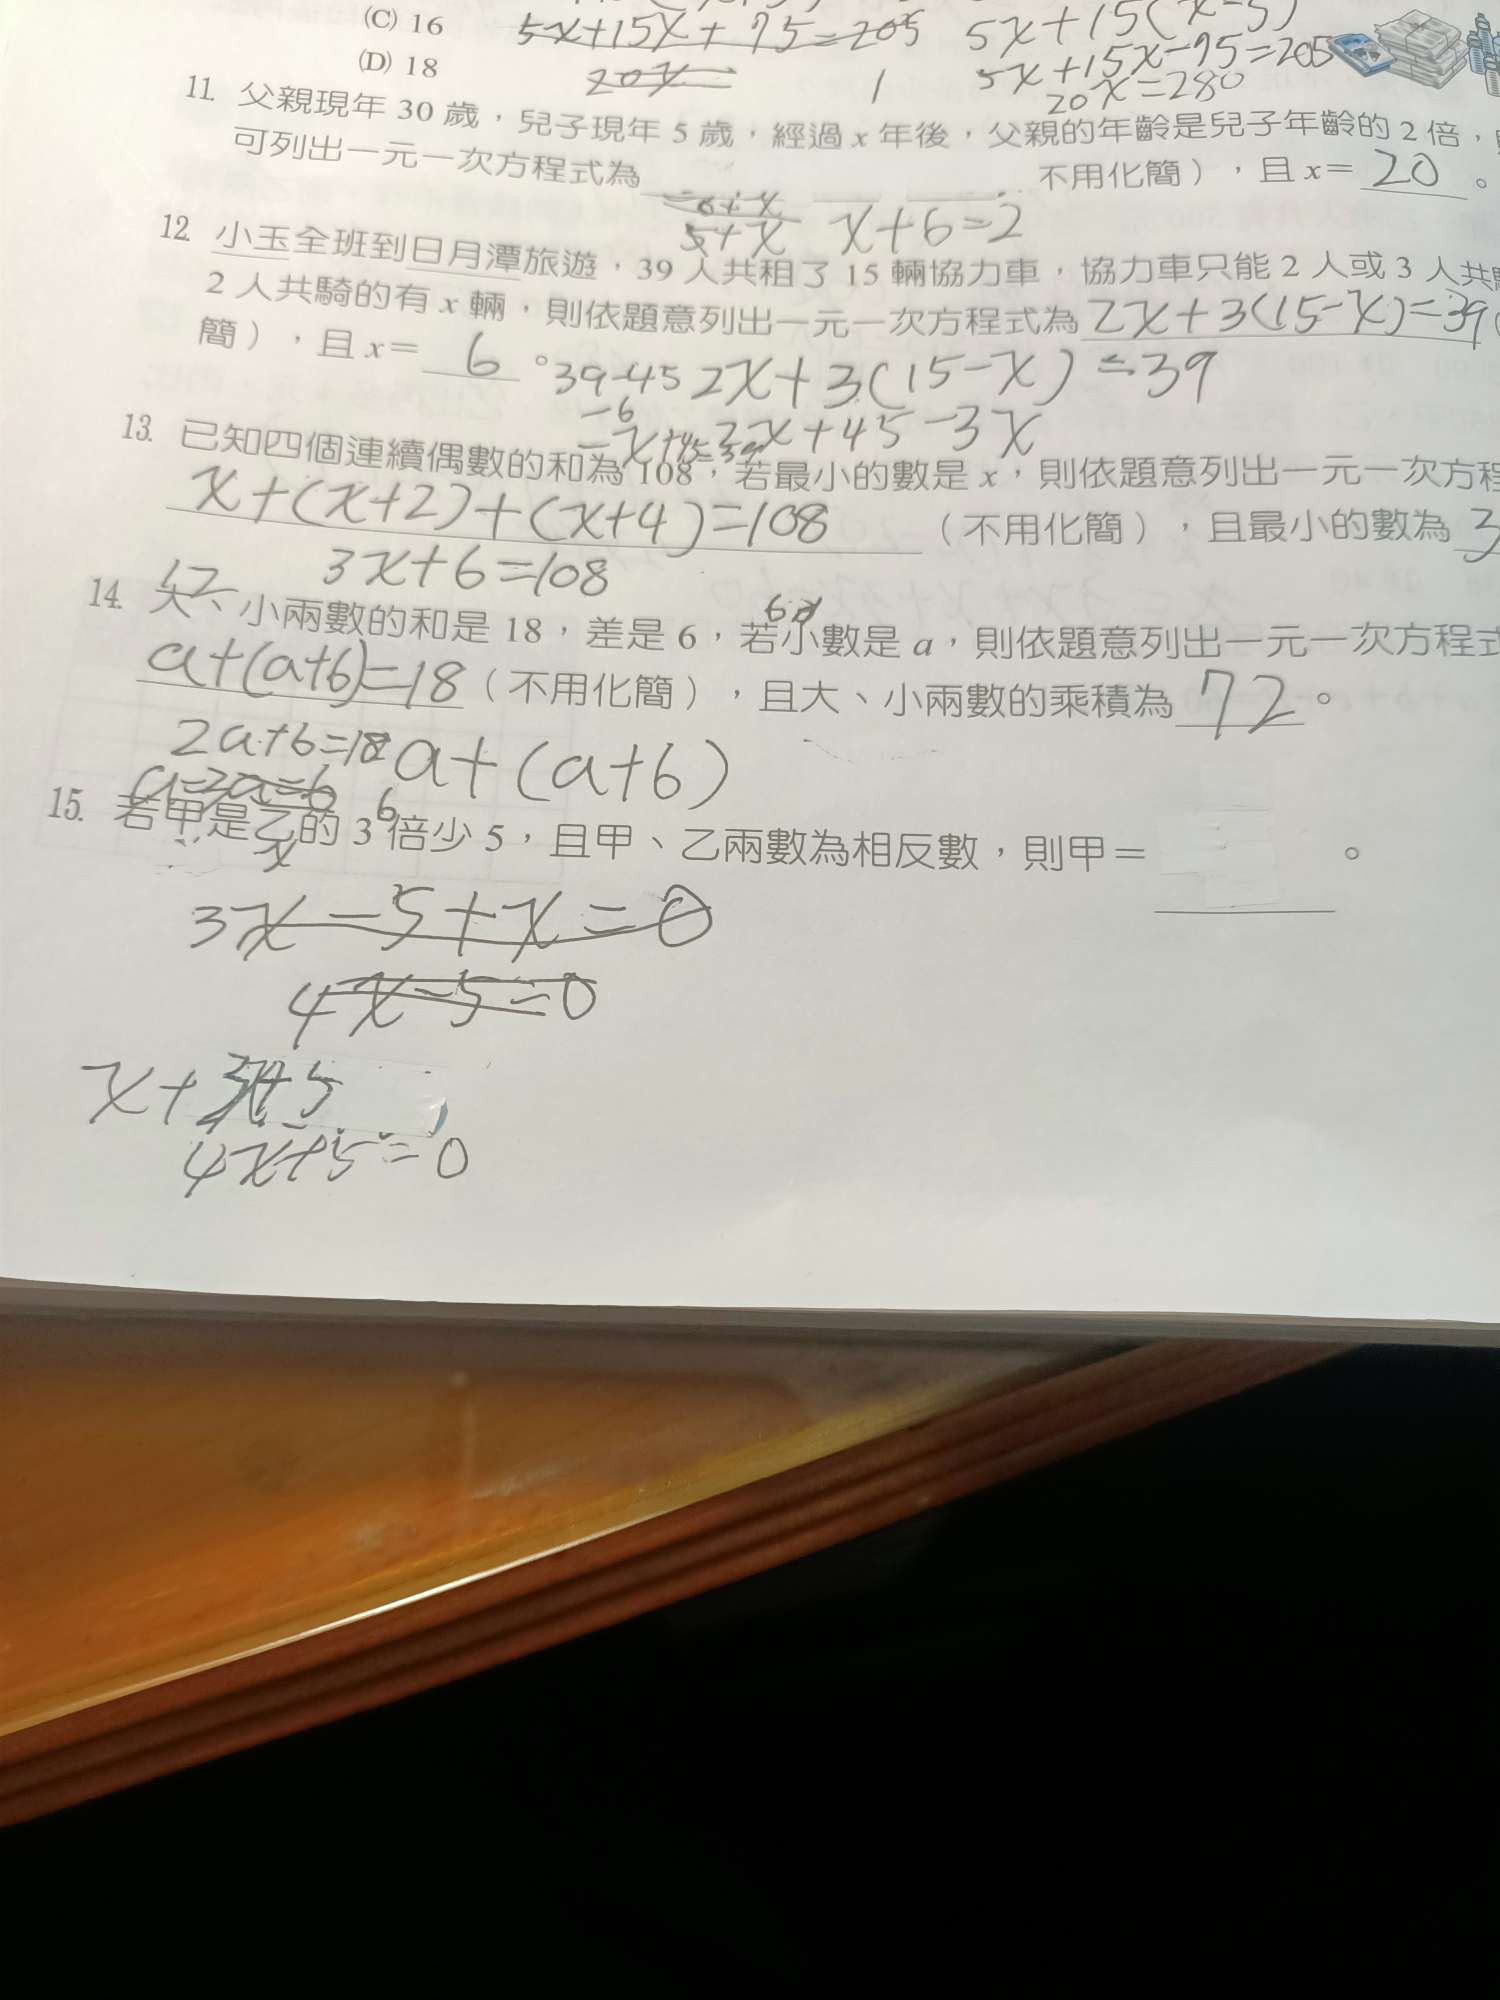 (C) 16
5x+15x+75=205
5x+15(x-5)
(D) 18
20x=
1
5x+15x-75=205
20x=280
11. 父親現年 30 歲，兒子現年 5 歲，經過 x 年後，父親的年齡是兒子年齡的 2 倍，
可列出一元一次方程式為
不用化簡），且 x= 20 。
5+x
x+6=2
12. 小玉全班到日月潭旅遊，39 人共租了 15 輛協力車，協力車只能 2 人或 3 人共
2 人共騎的有 x 輛，則依題意列出一元一次方程式為 2x+3(15-x)=39
簡），且 x= 6 。
39-45 2x+3(15-x)=39
-6
-x+45=39
2x+45-3x
13. 已知四個連續偶數的和為 108，若最小的數是 x，則依題意列出一元一次方程
x+(x+2)+(x+4)=108（不用化簡），且最小的數為 3
3x+6=108
12
6
14. 大、小兩數的和是 18，差是 6，若小數是 a，則依題意列出一元一次方程式
a+(a+6)=18（不用化簡），且大、小兩數的乘積為 72 。
2a+6=18
a+(a+6)
6
15. 若甲是乙的 3 倍少 5，且甲、乙兩數為相反數，則甲＝ 。
x
3x-5+x=0
4x-5=0
4x+5=0